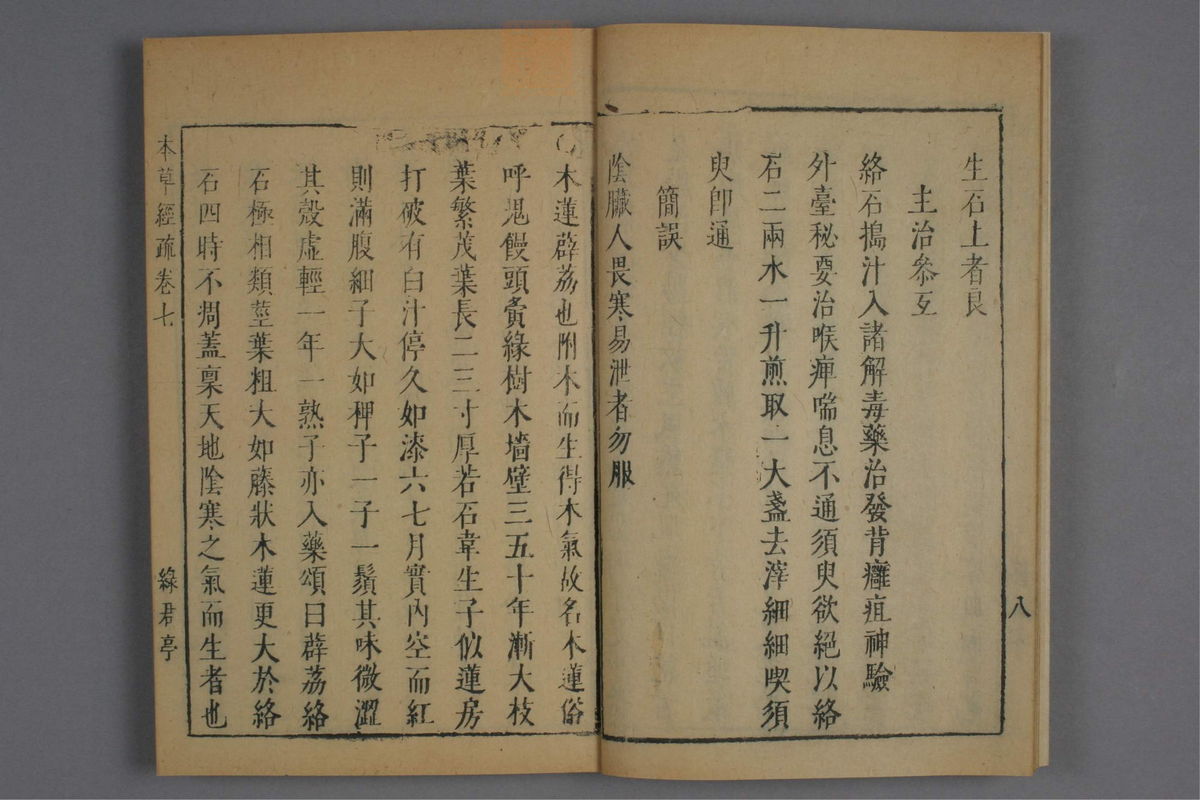 生石上者良
主治參互
絡石搗汁入諸解毒藥治發背癰疽神驗
外臺秘要治喉痺喘息不通須臾欲絕以絡
石二兩水一升煎取一大盞去滓細細喫須
臾卽通
簡誤
陰臟人畏寒易泄者勿服
八
木蓮薜荔也附木而生得木氣故名木蓮俗
呼鬼饅頭夤緣樹木墻壁三五十年漸大枝
葉繁茂葉長二三寸厚若石韋生子似蓮房
打破有白汁停久如漆六七月實內空而紅
則滿腹細子大如稗子一子一鬚其味微澀
其殼虛輕一年一熟子亦入藥頌曰薜荔絡
石極相類莖葉粗大如藤狀木蓮更大於絡
石四時不凋蓋稟天地陰寒之氣而生者也
本草經疏卷七
綠君亭